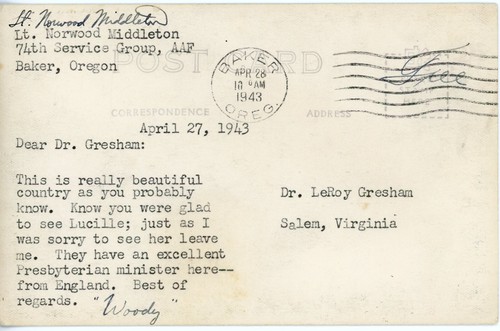 Lt. Norwood Middleton
Lt. Norwood Middleton
74th Service Group, AAF
Baker, Oregon
POST CARD
BAKER
APR 28
10 AM
1943
OREG.
Free
CORRESPONDENCE
ADDRESS
April 27, 1943
Dear Dr. Gresham:
This is really beautiful
country as you probably
know. Know you were glad
to see Lucille; just as I
was sorry to see her leave
me. They have an excellent
Presbyterian minister here--
from England. Best of
regards. "Woody"
Dr. LeRoy Gresham
Salem, Virginia